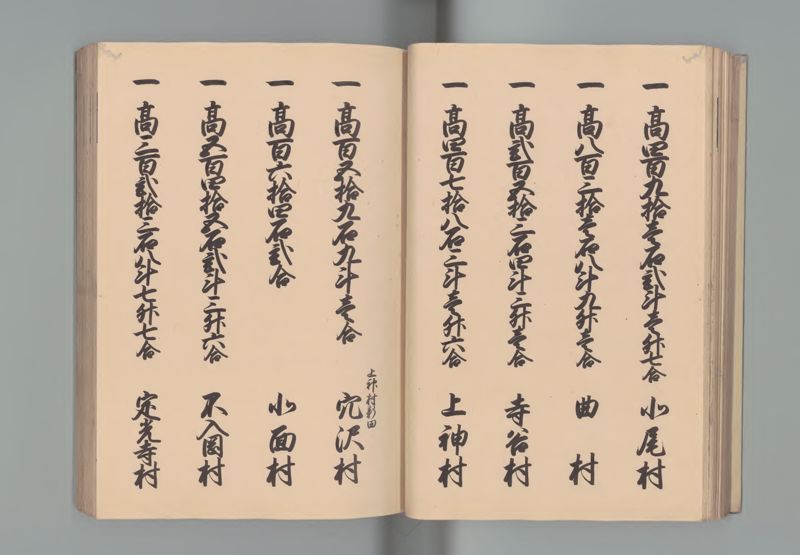 一 高四百九拾壱石弐斗壱升七合 小尾村
一 高八百三拾壱石八斗九升壱合 曲村
一 高弐百五拾三石四斗三升壱合 寺谷村
一 高四百七拾八石三斗壱升六合 上神村
上神村新田
一 高百五拾九石九斗壱合 穴沢村
一 高百六拾四石弐合 小面村
一 高五百四拾五石弐斗三升六合 不入岡村
一 高三百弐拾三石八斗七升七合 定光寺村